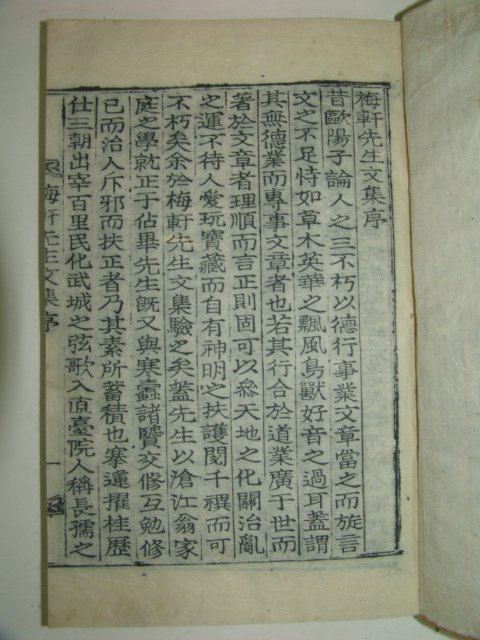 梅軒先生文集序
昔歐陽子論人之三不朽以德行事業文章當之而旋言
文之不足恃如草木英華之飄風鳥獸好音之過耳蓋謂
其無德業而專事文章者也若其行合於道業廣于世而
著於文章者理順而言正則固可以叅天地之化關治亂
之運不待人愛玩寶藏而自有神明之扶護閱千禩而可
不朽矣余於梅軒先生文集驗之矣蓋先生以滄江翁家
庭之學就正于佔畢先生旣又與寒蠹諸賢交修互勉修
已而治人斥邪而扶正者乃其素所蓄積也搴蓮擢桂歷
仕三朝出宰百里民化武城之弦歌入直臺院人稱長孺之
梅軒先生文集序
一